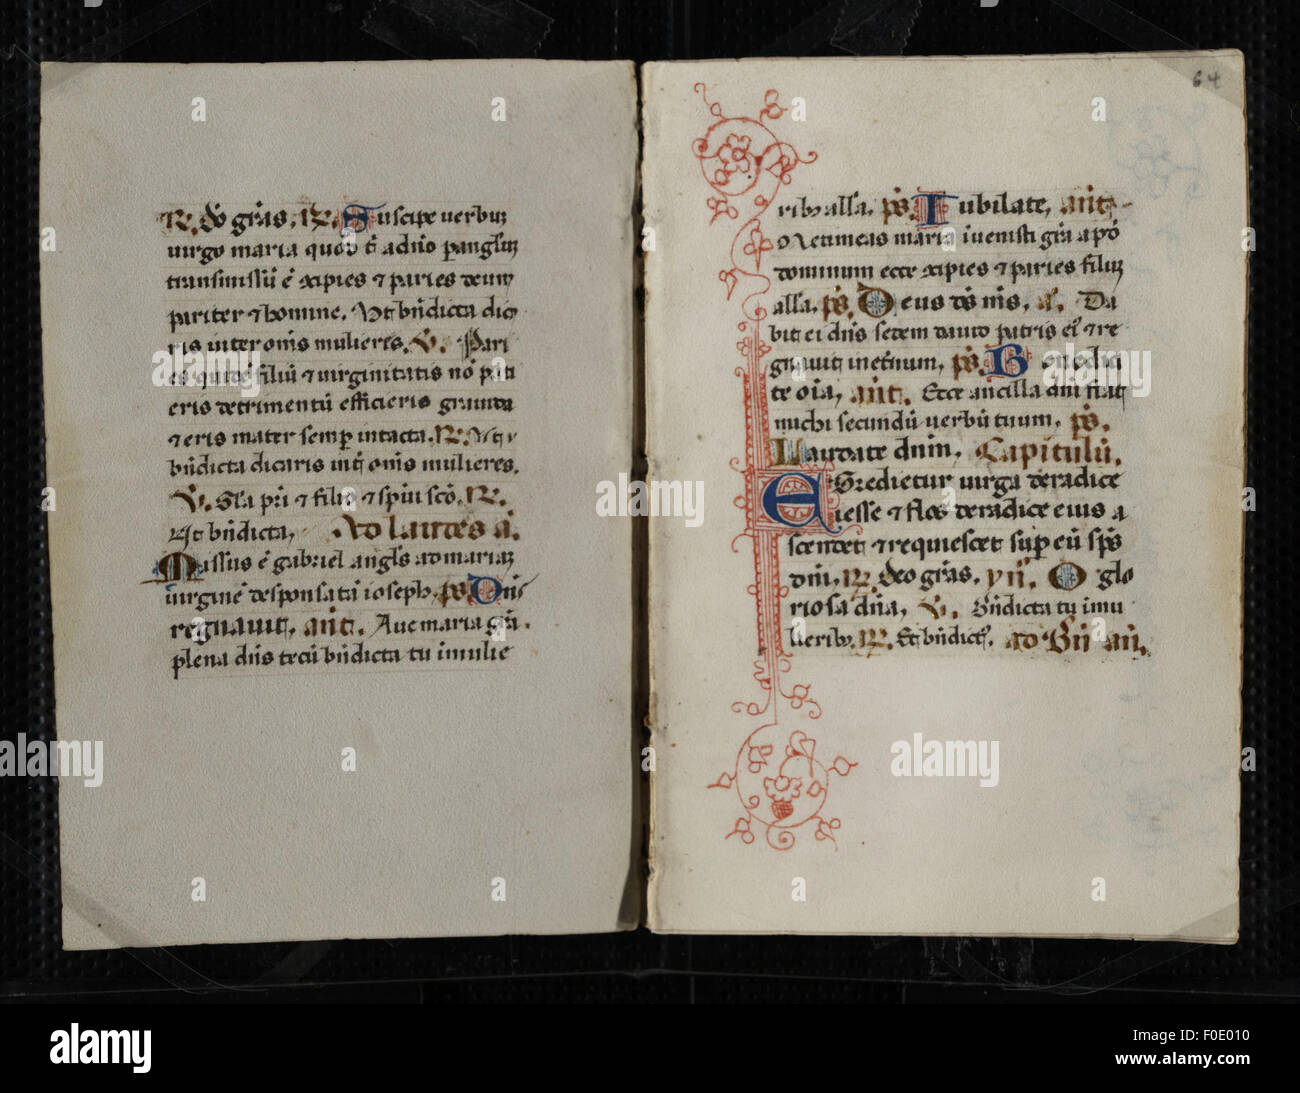 R. dō grās. R. Suscipe uerbuʒ
uirgo maria quod t̄ a dn̄o p anglʒ
transmissū ē ꝯcipies ⁊ paries deum
pariter ⁊ homine. Vt bn̄dicta dica
ris inter om̄s mulieres. V. Pari
es quidē filiū ⁊ uirginitatis nō pati
eris detrimentū efficieris grauida
⁊ eris mater semp̄ intacta. R. Vt
bn̄dicta dicaris int̄ om̄s mulieres.
V. Gla pr̄i ⁊ filio ⁊ sp̄ui scō. R.
Vt bn̄dicta, Ad laudes a.
Missus ē gabriel angl̄s ad mariaʒ
uirginē desponsatā ioseph. ps. Dn̄s
regnauit, ant. Aue maria grā.
plena dn̄s tecū bn̄dicta tu ī mulie
64
ribꝫ alla. ps. Iubilate, ant.
Ne timeas maria iuenisti grā apd̄
dominum ecce ꝯcipies ⁊ paries filiʒ
alla. ps. Deus ds̄ m̄s, a. Da
bit ei dn̄s sedem dauid patris ei⁹ ⁊ re
gnauit in et̄num, ps. Benedici
te oīa, ant. Ecce ancilla dn̄i fiat
michi secundū uerbū tuum. ps.
Laudate dnm. Capitulū.
EGredietur uirga de radice
iesse ⁊ flos de radice eius a
scendet ⁊ requiescet sup eū sp̄s
dn̄i. R. deo grās. yn̄. O glo
riosa dn̄a, V. Bn̄dicta tu ī mu
lieribꝫ. R. Et bn̄dict⁹. ad Bn̄ an̄.
alamy
a
alamy stock photo
Image ID: F0E010
www.alamy.com